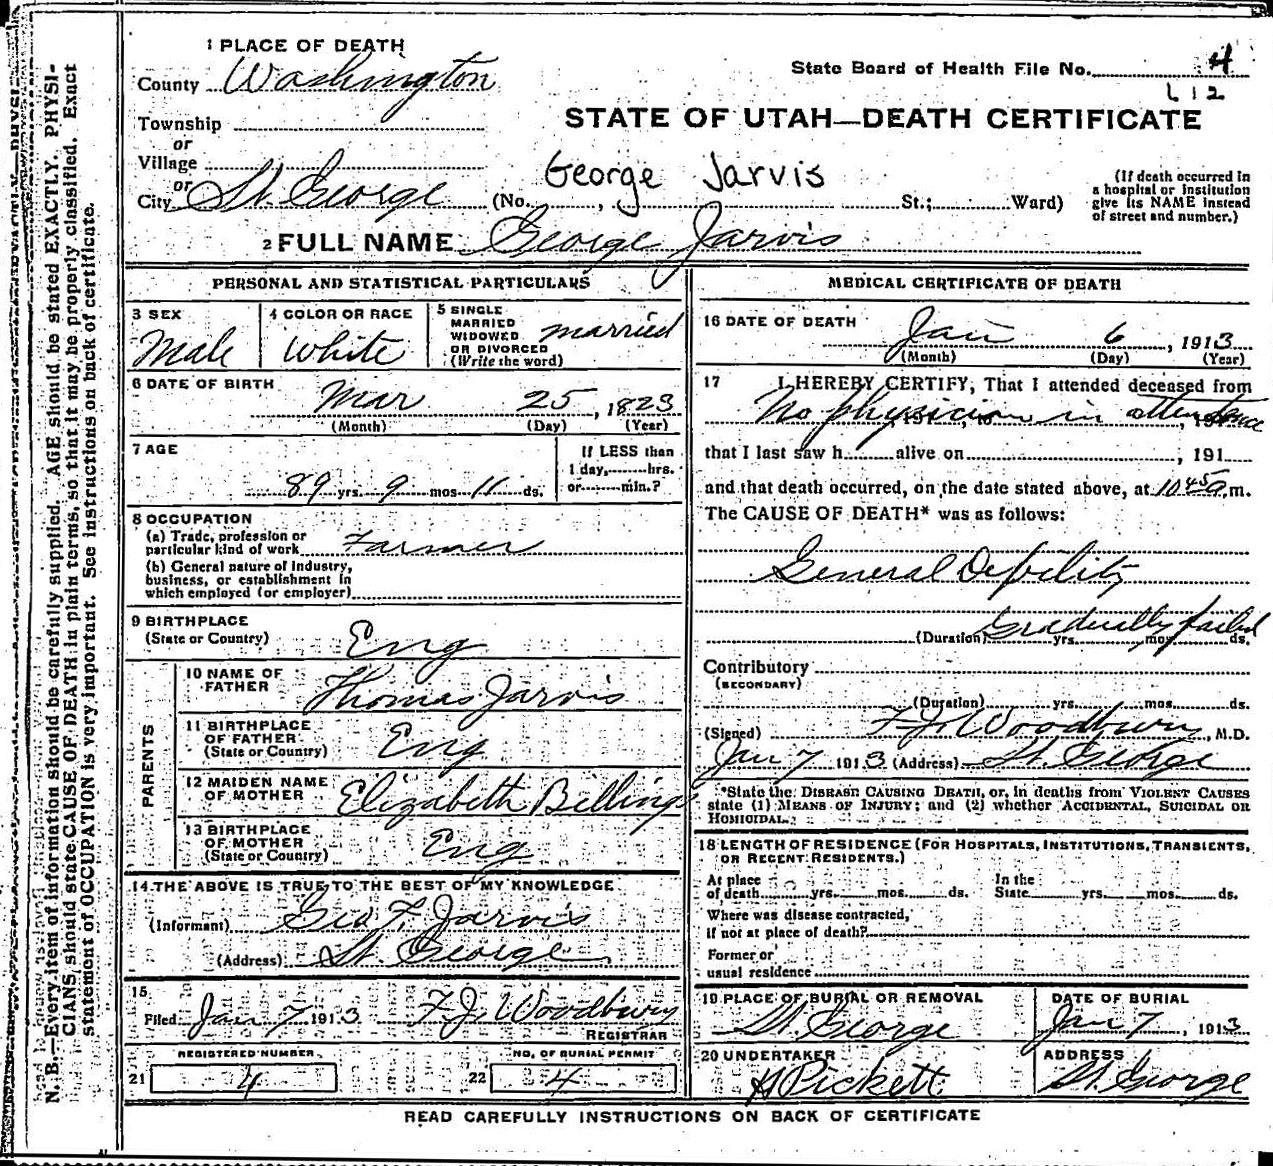 1 PLACE OF DEATH
County Washington
State Board of Health File No. 4
L 12
Township
or
Village
or
City St. George
STATE OF UTAH—DEATH CERTIFICATE
George Jarvis
(No. , St.; Ward)
(If death occurred in
a hospital or institution
give its NAME instead
of street and number.)
2 FULL NAME George Jarvis
PERSONAL AND STATISTICAL PARTICULARS
3 SEX
Male
4 COLOR OR RACE
White
5 SINGLE
MARRIED
WIDOWED
OR DIVORCED
(Write the word)
married
6 DATE OF BIRTH
Mar 25, 1823
(Month) (Day) (Year)
7 AGE
89 yrs. 9 mos. 11 ds.
If LESS than
1 day, hrs.
or min.?
8 OCCUPATION
(a) Trade, profession or
particular kind of work Farmer
(b) General nature of industry,
business, or establishment in
which employed (or employer)
9 BIRTHPLACE
(State or Country) Eng
PARENTS
10 NAME OF
FATHER Thomas Jarvis
11 BIRTHPLACE
OF FATHER
(State or Country) Eng
12 MAIDEN NAME
OF MOTHER Elizabeth Billing
13 BIRTHPLACE
OF MOTHER
(State or Country) Eng
14 THE ABOVE IS TRUE TO THE BEST OF MY KNOWLEDGE
(Informant) Geo F. Jarvis
(Address) St. George
15
Filed Jan 7 1913 F. J. Woodbury
REGISTRAR
REGISTERED NUMBER
21 4
NO. OF BURIAL PERMIT
22 4
MEDICAL CERTIFICATE OF DEATH
16 DATE OF DEATH
Jan 6, 1913
(Month) (Day) (Year)
17 I HEREBY CERTIFY, That I attended deceased from
No physician in attendance
, 191 , to , 191
that I last saw h alive on , 191
and that death occurred, on the date stated above, at 10 45 a. m.
The CAUSE OF DEATH* was as follows:
General Debility
(Duration) Gradually failed yrs. mos. ds.
Contributory
(SECONDARY)
(Duration) yrs. mos. ds.
(Signed) F. J. Woodbury, M.D.
Jan 7 1913 (Address) St. George
*State the DISEASE CAUSING DEATH, or, in deaths from VIOLENT CAUSES
state (1) MEANS OF INJURY; and (2) whether ACCIDENTAL, SUICIDAL OR
HOMICIDAL.
18 LENGTH OF RESIDENCE (FOR HOSPITALS, INSTITUTIONS, TRANSIENTS,
OR RECENT RESIDENTS.)
At place
of death yrs. mos. ds.
In the
State yrs. mos. ds.
Where was disease contracted,
if not at place of death?
Former or
usual residence
19 PLACE OF BURIAL OR REMOVAL
St. George
DATE OF BURIAL
Jan 7, 1913
20 UNDERTAKER
H Pickett
ADDRESS
St. George
READ CAREFULLY INSTRUCTIONS ON BACK OF CERTIFICATE
N. B.—Every item of information should be carefully supplied. AGE should be stated EXACTLY. PHYSI-
CIANS should state CAUSE OF DEATH in plain terms, so that it may be properly classified. Exact
statement of OCCUPATION is very important. See instructions on back of certificate.